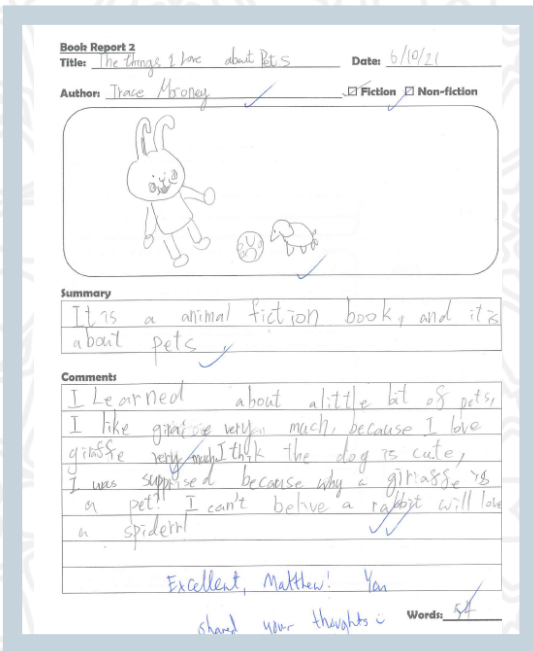 Book Report 2
Title: The things I love about Pets Date: 6/10/21
Author: Trace Moroney Fiction Non-fiction
Summary
It is a animal fiction book, and it is
about pets
Comments
I Learned about alittle bit of pets,
I like giraffe very much, because I love
giraffe very much. I thik the dog is cute,
I was supprised because why a giriaffe is
a pet? I can't belive a rabbit will love
a spider!
Excellent, Matthew! You
shared your thoughts
Words: 54